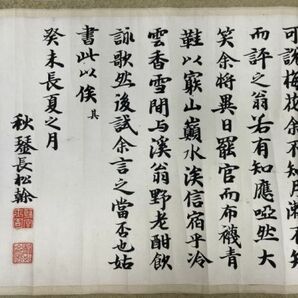 可說梅
而評之翁若有知應啞然大
笑余將異日罷官而布襪青
鞋以窮山巔水涘信宿乎冷
雲香雪間与溪翁野老酣飲
詠歌然後試余言之當否也姑
書此以俟其
癸未長夏之月
秋琴長松翰